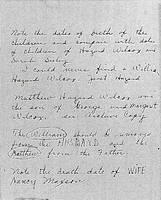 Note the dates of births of the
children and compare with dates
of children of Hazard Wilcox and
Sarah
I could never find a William
Hazard Wilcox, just Hazard
Matthew Hazard Wilcox was
the son of George and Margaret
Wilcox, see
The (William) should be removed
from the HUSBAND and the
(Matthew) from the Father
Note the death date of WIFE
Nancy